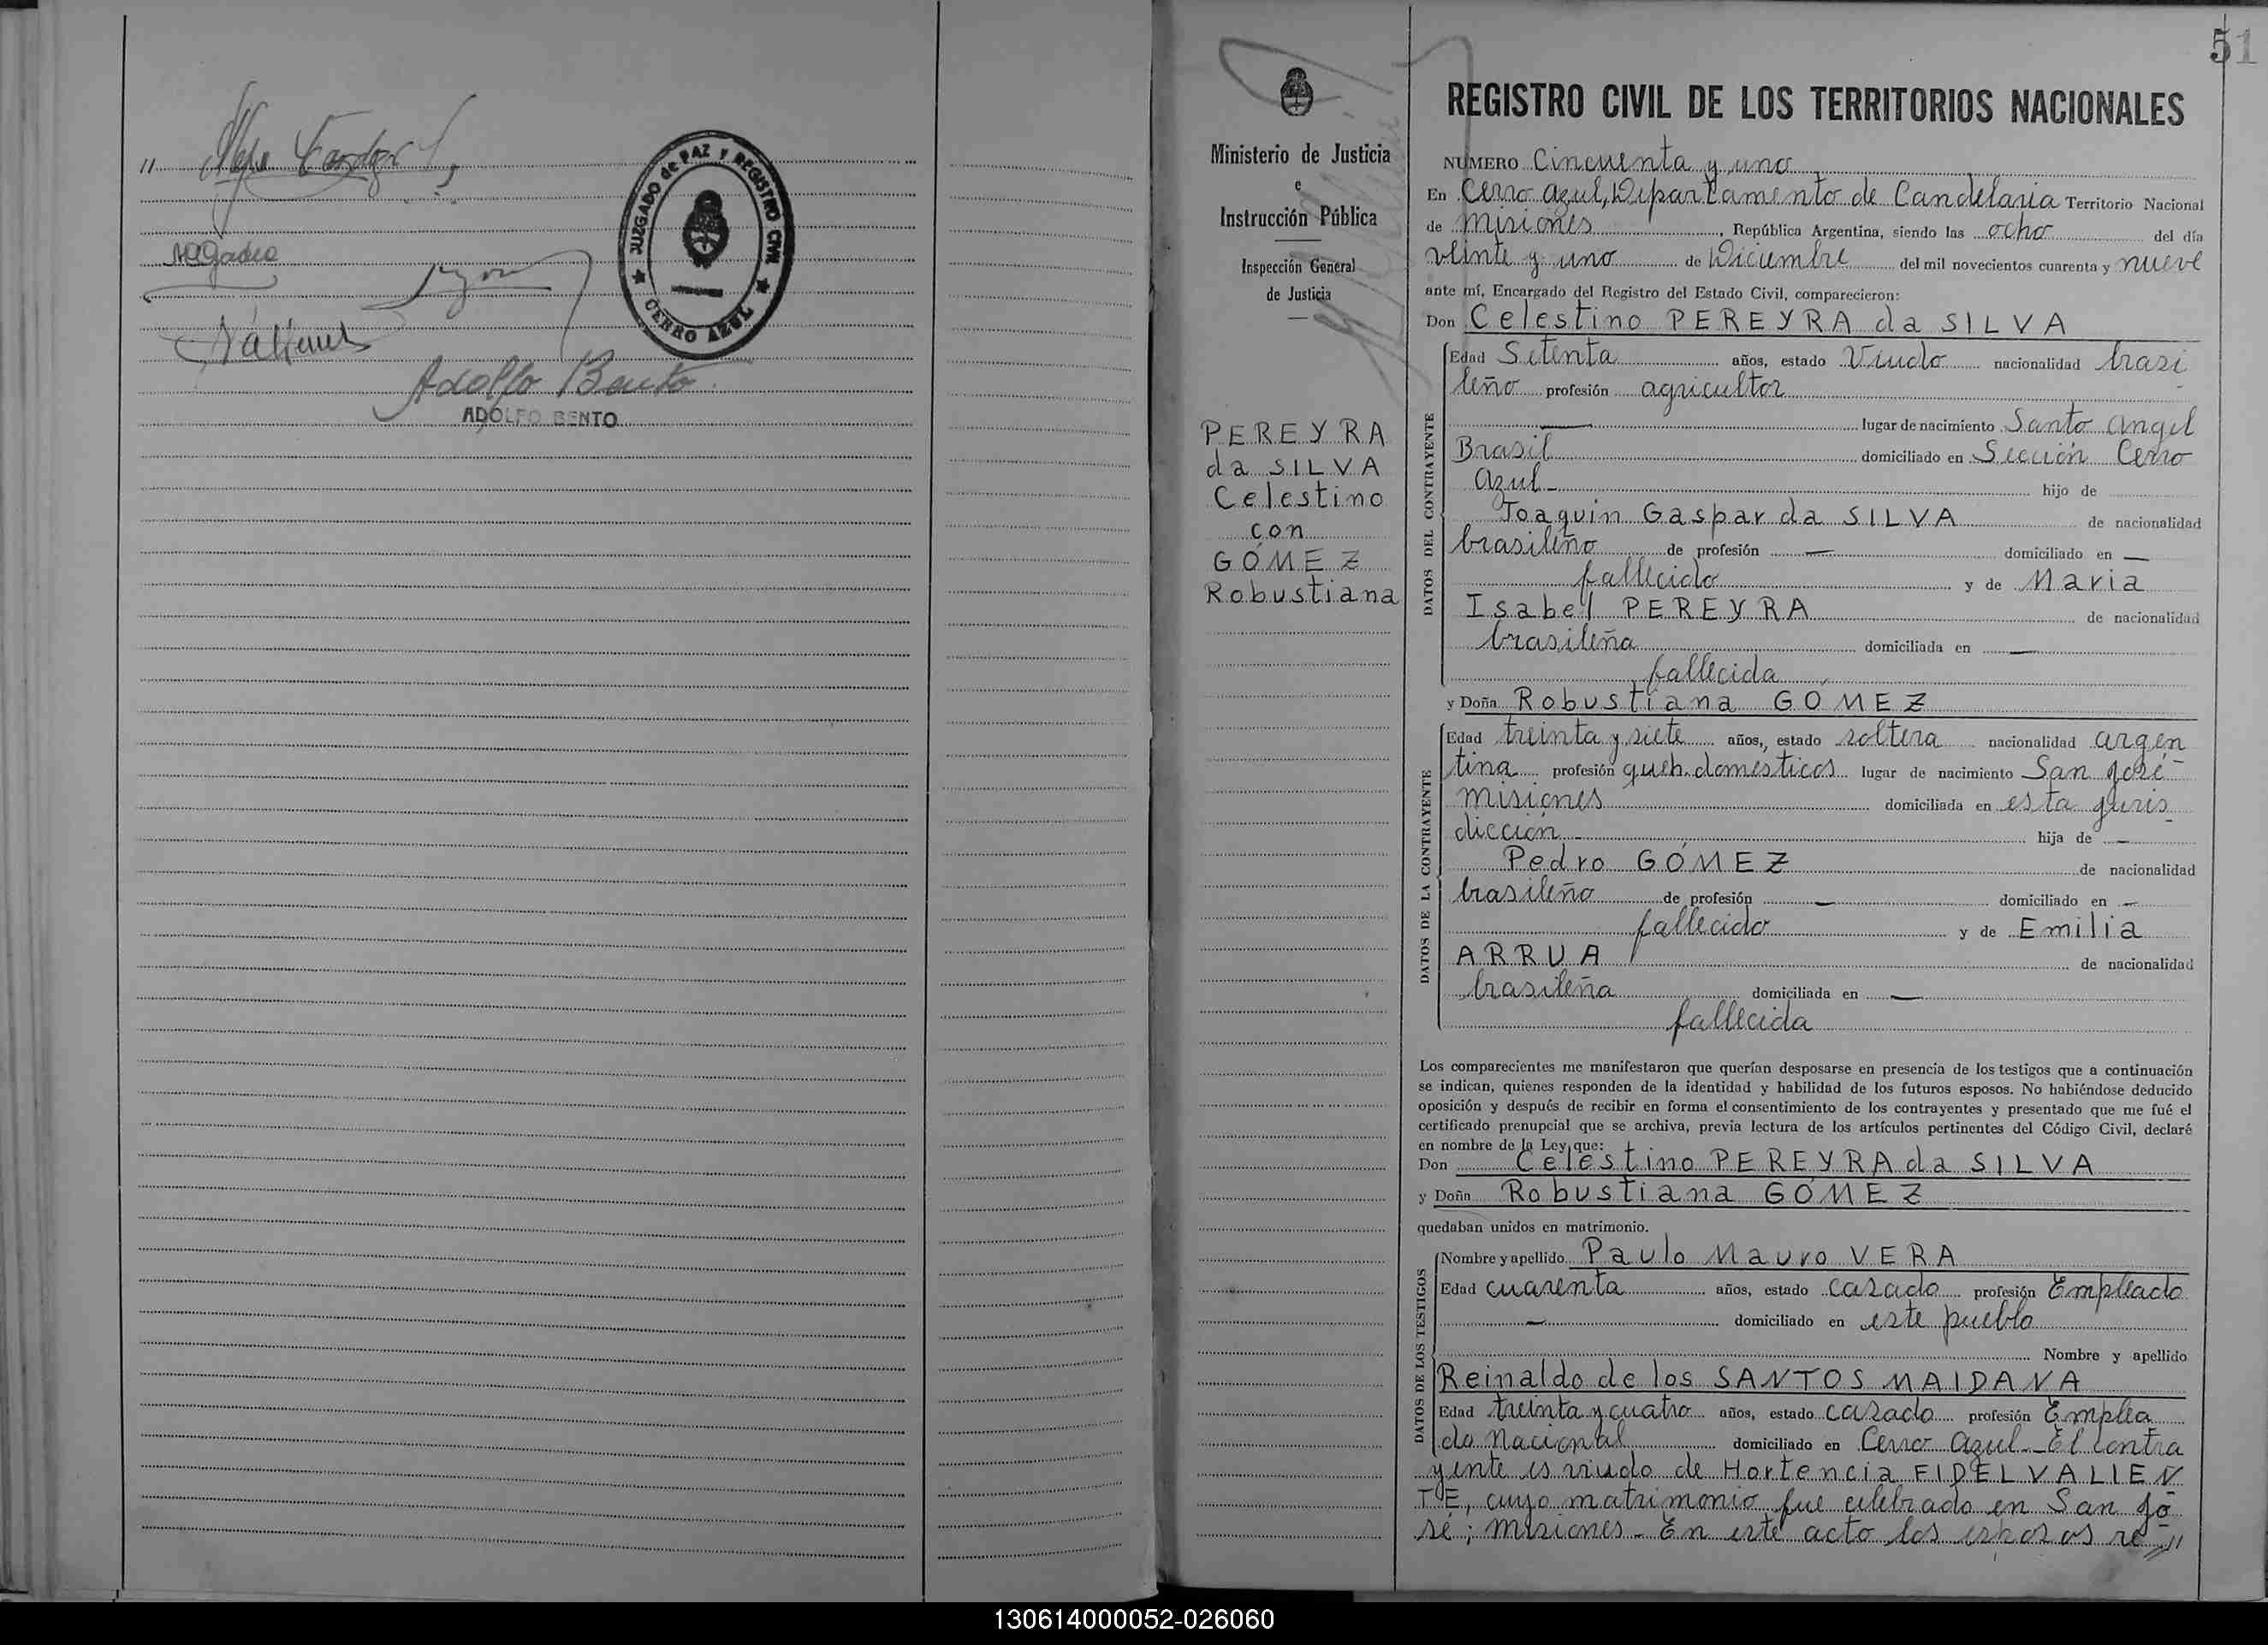 JUZGADO de PAZ Y REGISTRO CIVIL
CERRO AZUL
Adolfo Bento
ADOLFO BENTO
51
Ministerio de Justicia
e
Instrucción Pública
Inspección General
de Justicia
PEREYRA
da SILVA
Celestino
con
GÓMEZ
Robustiana
REGISTRO CIVIL DE LOS TERRITORIOS NACIONALES
NUMERO Cincuenta y uno
En Cerro Azul, Departamento de Candelaria Territorio Nacional
de Misiones, República Argentina, siendo las ocho del día
veinte y uno de Diciembre del mil novecientos cuarenta y nueve
ante mí, Encargado del Registro del Estado Civil, comparecieron:
Don Celestino PEREYRA da SILVA
DATOS DEL CONTRAYENTE
Edad Setenta años, estado Viudo nacionalidad brasi
leño profesión agricultor
— lugar de nacimiento Santo Angel
Brasil domiciliado en Sección Cerro
Azul — hijo de
Joaquin Gaspar da SILVA de nacionalidad
brasileño de profesión — domiciliado en —
fallecido y de Maria
Isabel PEREYRA de nacionalidad
brasileña domiciliada en —
fallecida
y Doña Robustiana GÓMEZ
DATOS DE LA CONTRAYENTE
Edad treinta y siete años, estado soltera nacionalidad argen
tina profesión queh. domésticos lugar de nacimiento San José
Misiones domiciliada en esta juris
dicción — hija de —
Pedro GÓMEZ de nacionalidad
brasileño de profesión — domiciliado en —
fallecido y de Emilia
ARRUA de nacionalidad
brasileña domiciliada en —
fallecida
Los comparecientes me manifestaron que querían desposarse en presencia de los testigos que a continuación
se indican, quienes responden de la identidad y habilidad de los futuros esposos. No habiéndose deducido
oposición y después de recibir en forma el consentimiento de los contrayentes y presentado que me fué el
certificado prenupcial que se archiva, previa lectura de los artículos pertinentes del Código Civil, declaré
en nombre de la Ley que:
Don Celestino PEREYRA da SILVA
y Doña Robustiana GÓMEZ
quedaban unidos en matrimonio.
DATOS DE LOS TESTIGOS
Nombre y apellido Paulo Mauro VERA
Edad cuarenta años, estado casado profesión Empleado
— domiciliado en este pueblo
Nombre y apellido
Reinaldo de los SANTOS MAIDANA
Edad treinta y cuatro años, estado casado profesión Emplea
do Nacional domiciliado en Cerro Azul. El contra
yente es viudo de Hortencia FIDEL VALIEN
TE, cuyo matrimonio fue celebrado en San Jo
sé; Misiones - En este acto los esposos re //
130614000052-026060